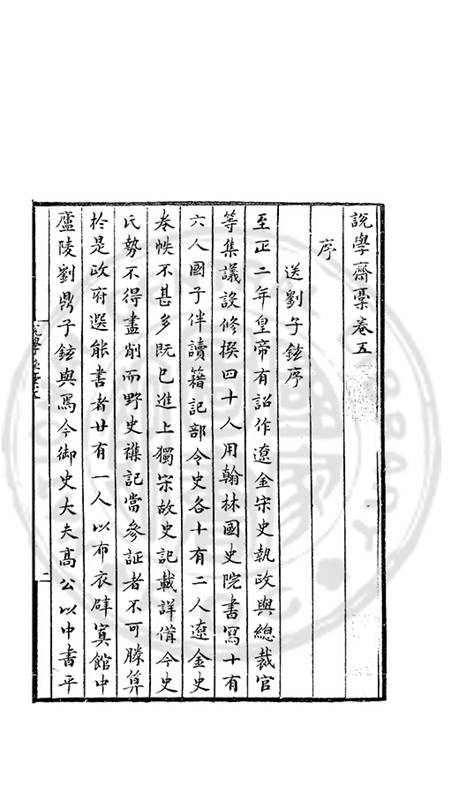 說學齋稾卷五
序
送劉子鉉序
至正二年皇帝有詔作遼金宋史執政與總裁官
等集議設修撰四十人用翰林國史院書寫十有
六人國子伴讀籍記部令史各十有二人遼金史
卷帙不甚多既已進上獨宋故史記載詳備今史
氏勢不得盡削而野史襍記當參証者不可勝算
於是政府選能書者廿有一人以布衣辟寘館中
廬陵劉鼎子鉉與焉今御史大夫髙公以中書平
二